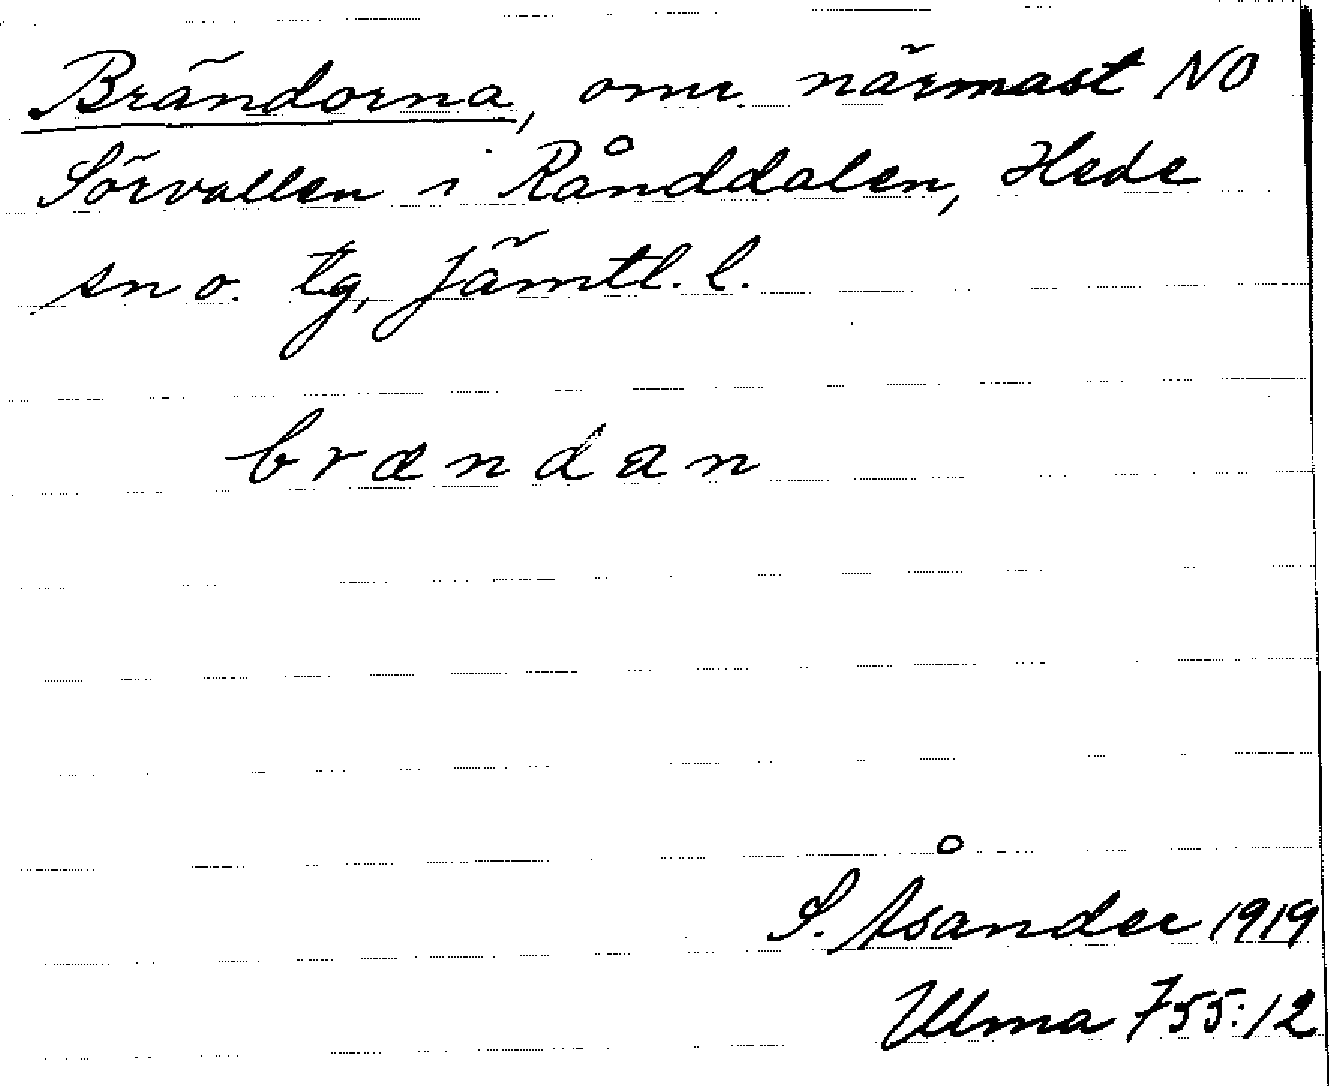 Brändorna, omr. närmast NO
Sörvallen i Rånddalen, Hede
sn o. tg, Jämtl. l.
brændan
S. Åsander 1919
Ulma 755:12